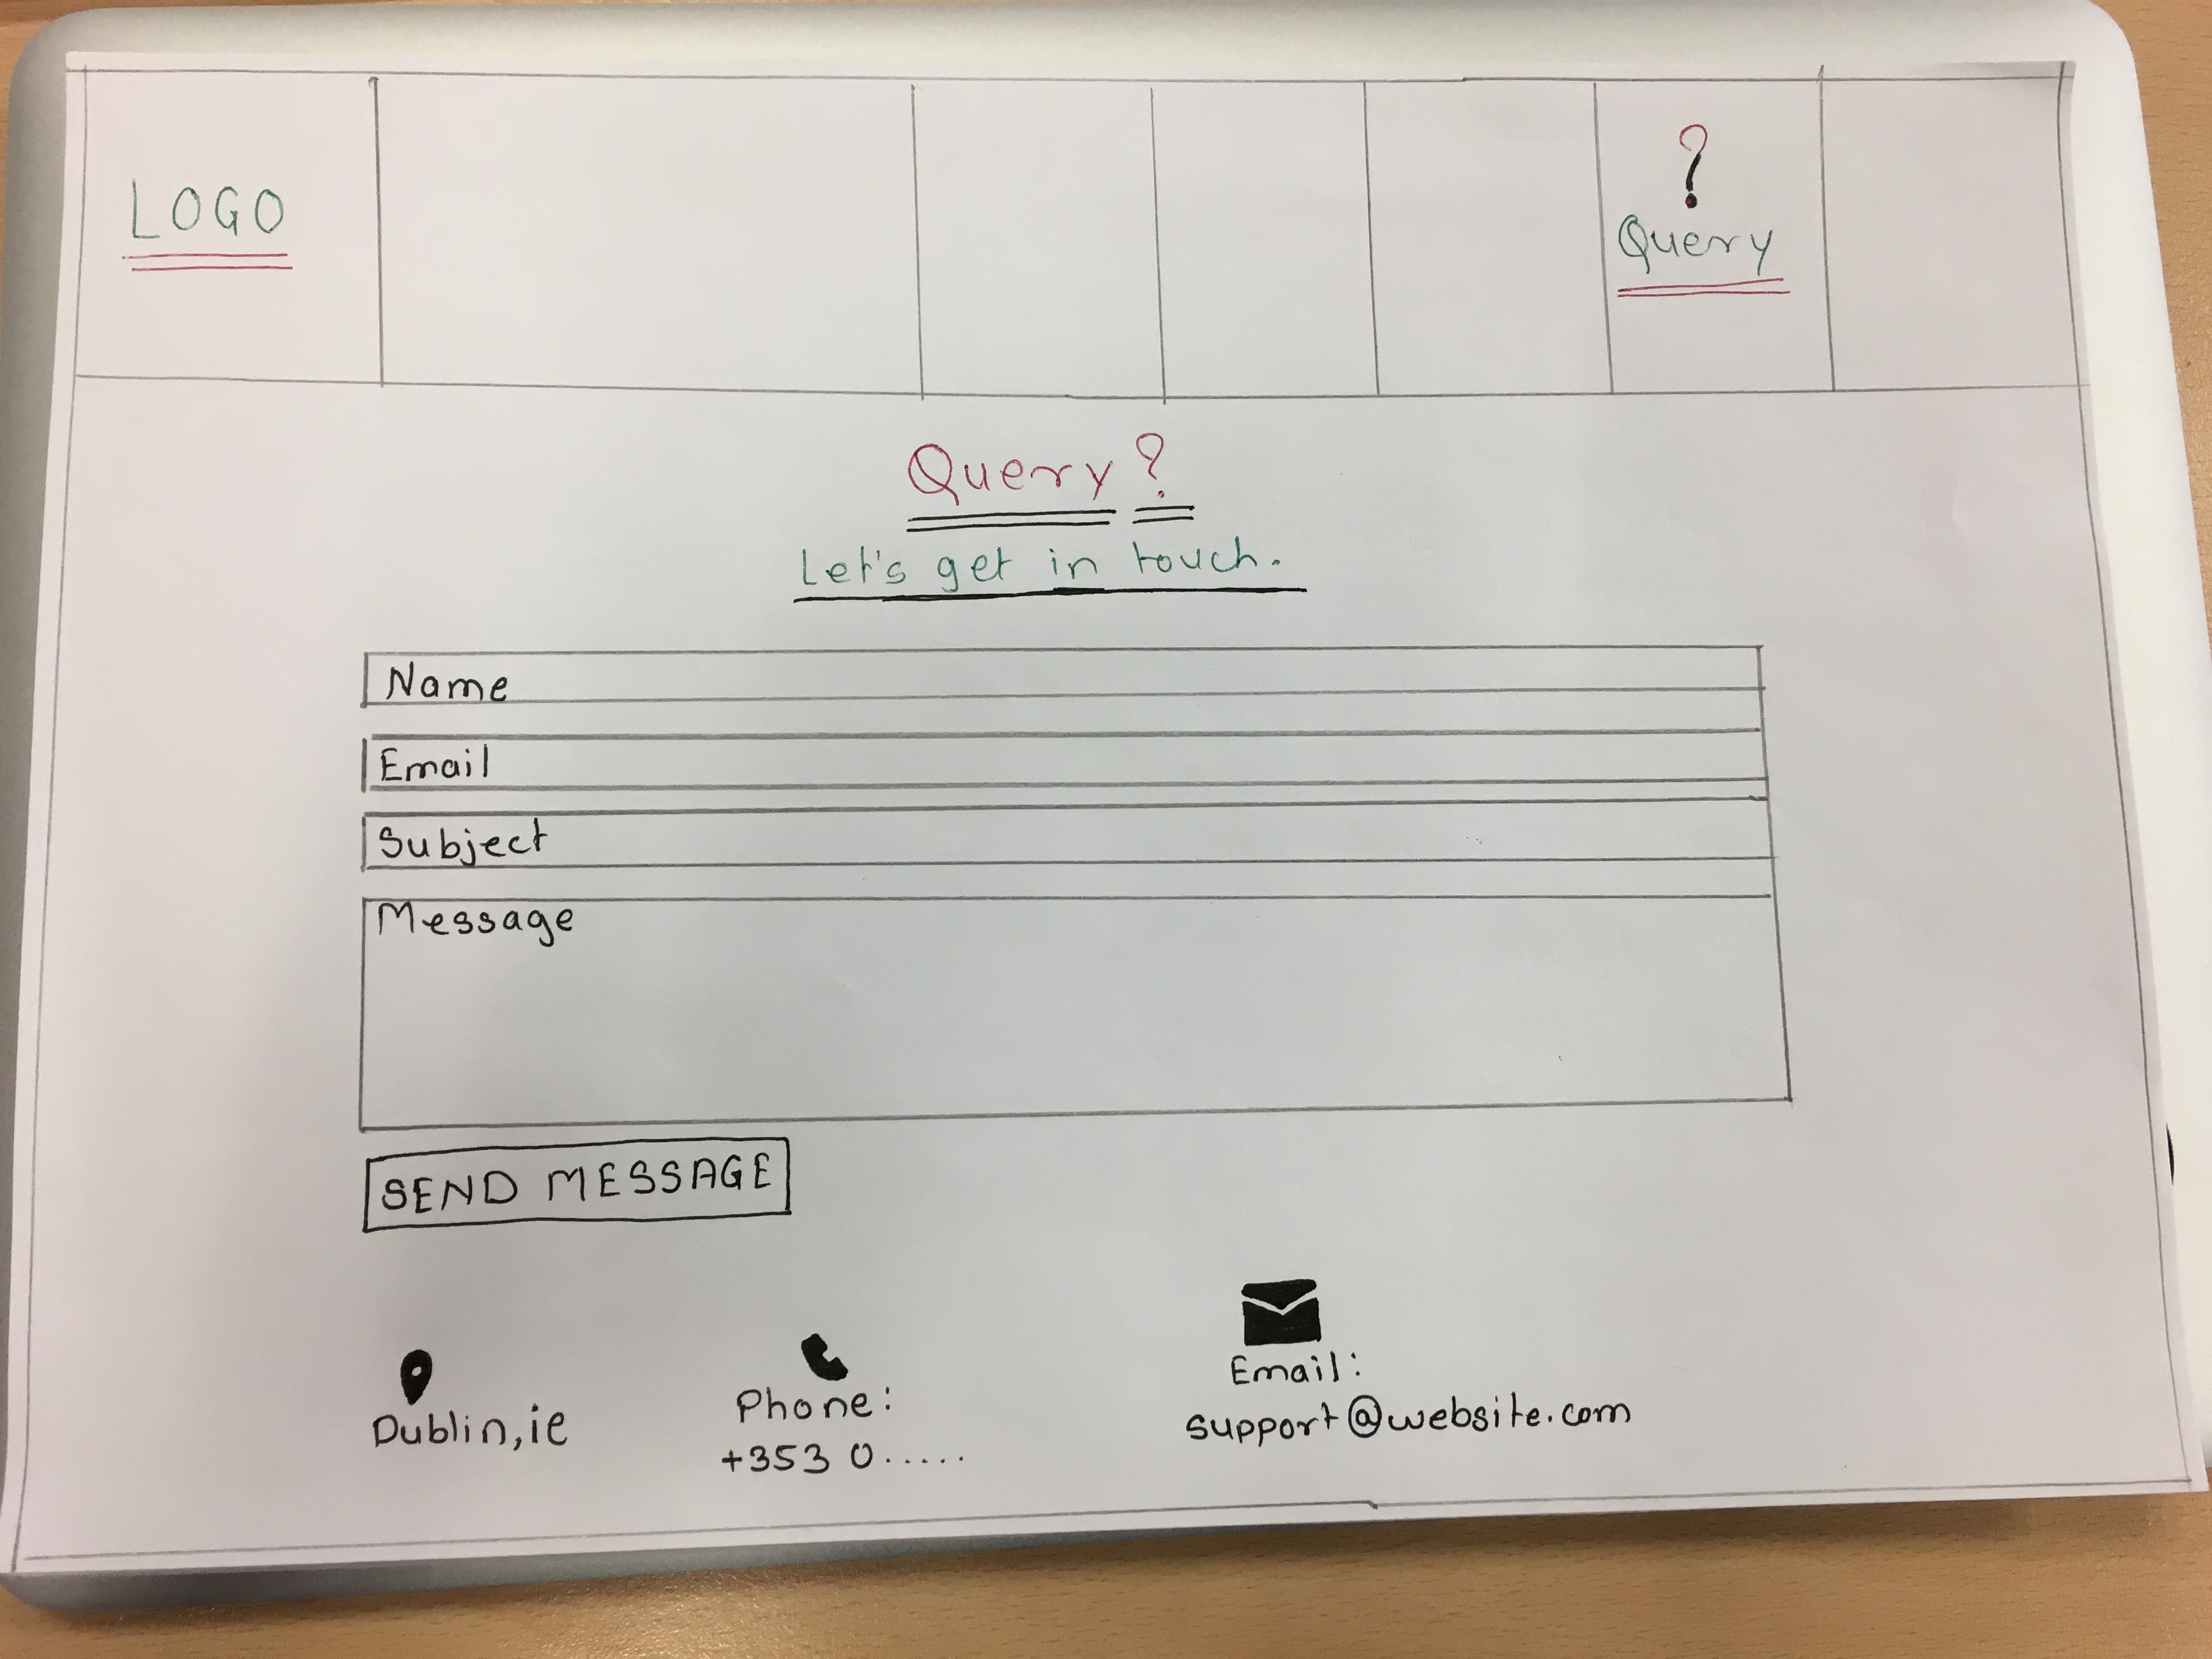 LOGO
?
Query
Query?
Let's get in touch.
Name
Email
Subject
Message
SEND MESSAGE
Dublin, ie
Phone:
+353 0......
Email:
support@website.com